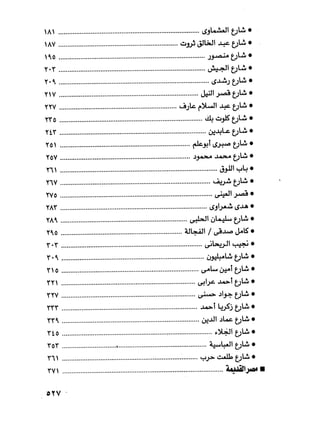 • شارع العشماوى ........ ١٨١
• شارع عبد الخالق ثروت ........ ١٨٧
• شارع منصور ........ ١٩٥
• شارع الجيش ........ ٢٠٢
• شارع رشدى ........ ٢٠٩
• شارع قصر النيل ........ ٢١٧
• شارع عبد السلام عارف ........ ٢٢٧
• شارع كلوت بك ........ ٢٣٥
• شارع عابدين ........ ٢٤٣
• شارع صبرى أبو علم ........ ٢٥١
• شارع محمد محمود ........ ٢٥٧
• باب اللوق ........ ٢٦١
• شارع شريف ........ ٢٦٧
• قصر العينى ........ ٢٧٥
• هدى شعراوى ........ ٢٨٣
• شارع سليمان الحلبى ........ ٢٨٩
• كامل صدقى / الفجالة ........ ٢٩٥
• نجيب الريحانى ........ ٣٠٢
• شارع شامبليون ........ ٣٠٩
• شارع أمين سامى ........ ٣١٥
• شارع أحمد عرابى ........ ٣٢١
• شارع جواد حسنى ........ ٣٢٧
• شارع زكريا أحمد ........ ٣٣٣
• شارع عماد الدين ........ ٣٣٩
• شارع الجلاء ........ ٣٤٥
• شارع العباسية ........ ٣٥٣
• شارع طلعت حرب ........ ٣٦١
■ مصر القديمة ........ ٣٧١
٥٢٧